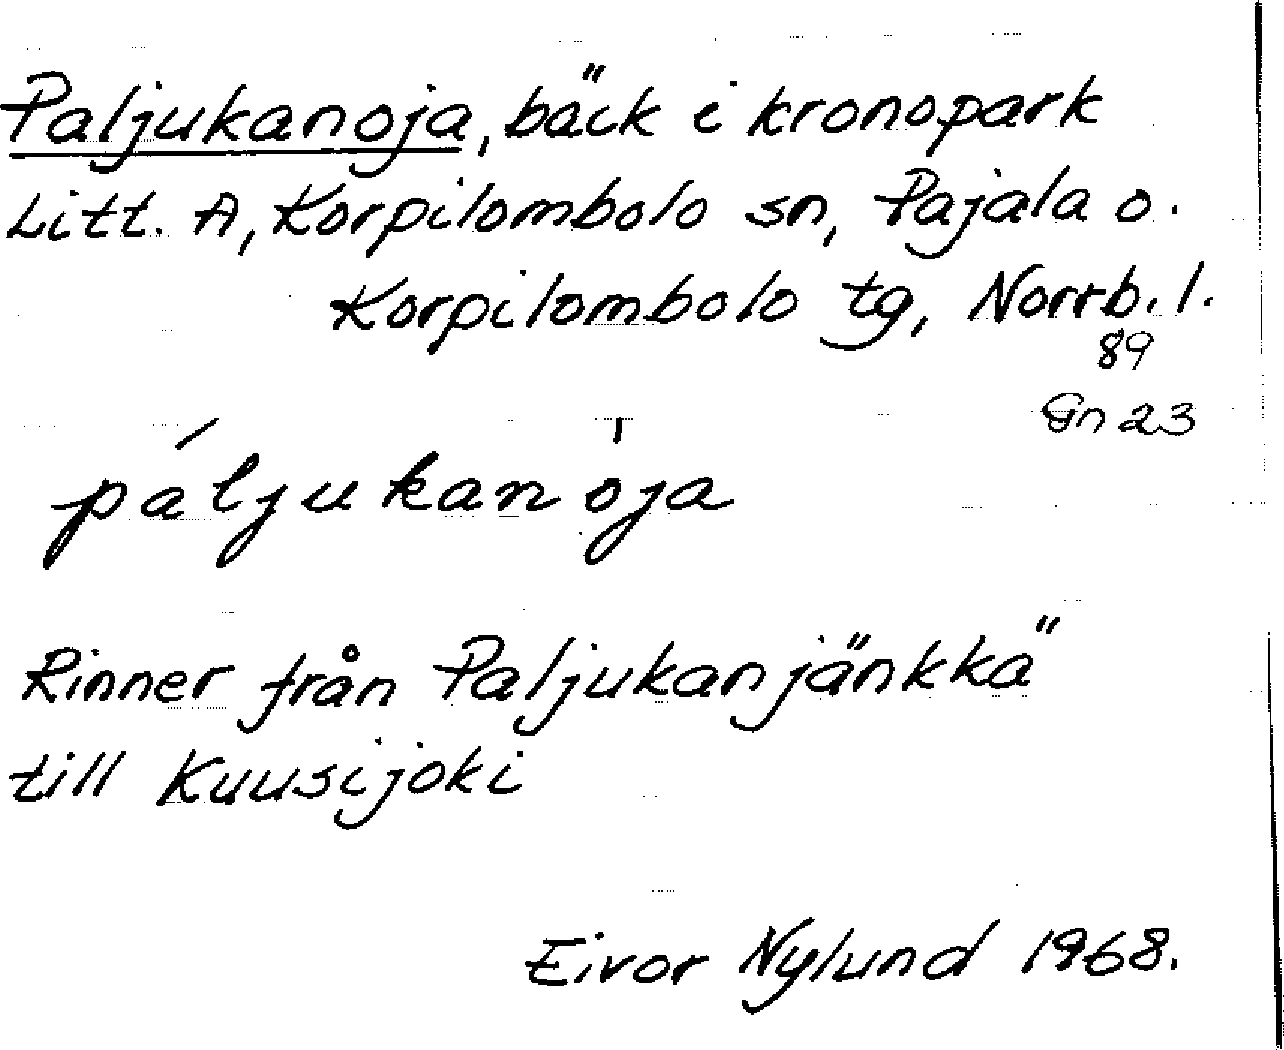 Paljukanoja, bäck i kronopark
Litt. A, Korpilombolo sn, Pajala o.
Korpilombolo tg, Norrb. l.
89
Gn 23
páljukanòja
Rinner från Paljukanjänkkä
till Kuusijoki
Eivor Nylund 1968.